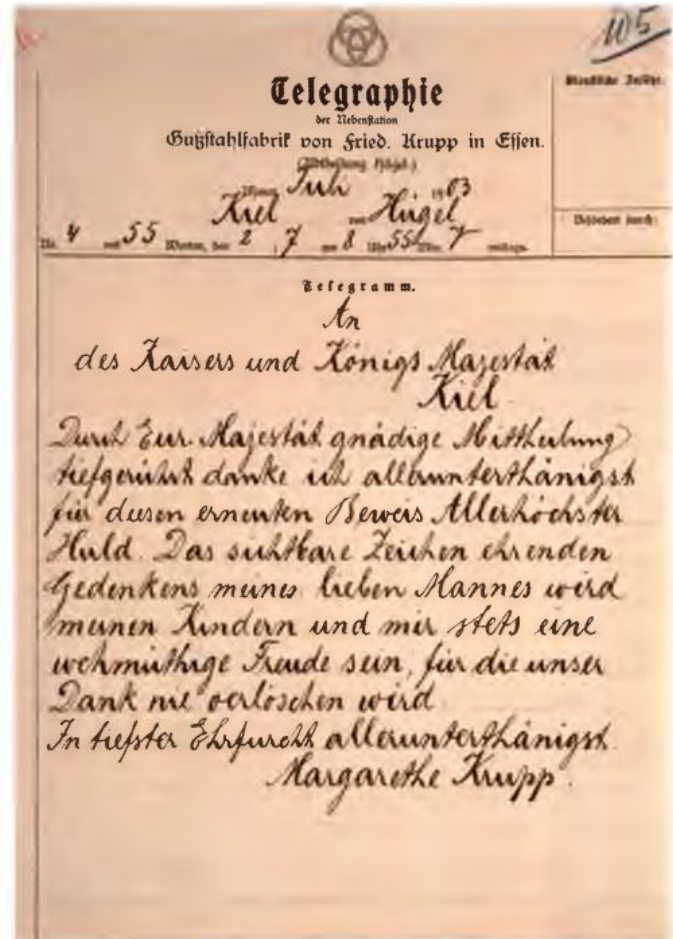 105
Telegraphie
der Nebenstation
Gußstahlfabrik von Fried. Krupp in Essen.
(Abtheilung Hügel.)
Monat Juli 1903
Kiel von Hügel
Nr. 4 mit 55 Worten, den 2 . 7 um 8 Uhr 55 Min. mittags.
Befördert durch:
Telegramm.
An
des Kaisers und Königs Majestät
Kiel.
Durch Eur. Majestät gnädige Mittheilung
tiefgerührt danke ich allerunterthänigst
für diesen erneuten Beweis Allerhöchster
Huld. Das sichtbare Zeichen ehrenden
Gedenkens meines lieben Mannes wird
meinen Kindern und mir stets eine
wehmüthige Freude sein, für die unser
Dank nie verlöschen wird.
In tiefster Ehrfurcht allerunterthänigst.
Margarethe Krupp.